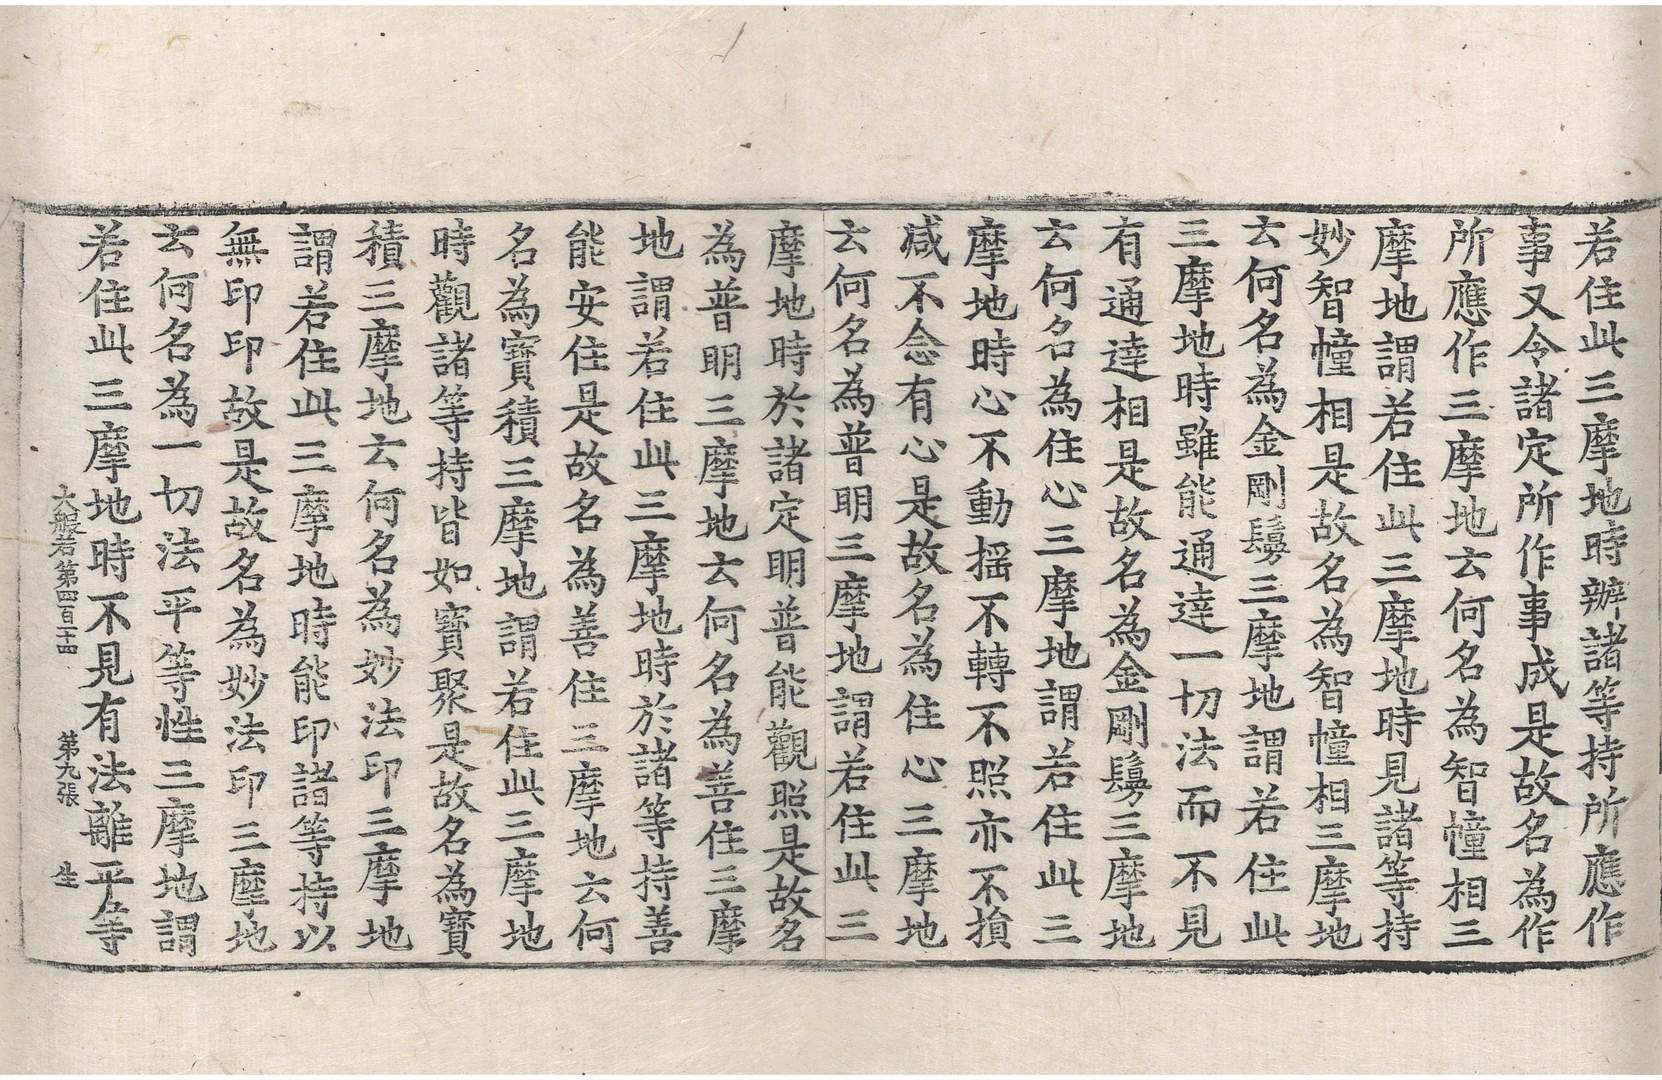 若住此三摩地時辦諸等持所應作
事又令諸定所作事成是故名為作
所應作三摩地云何名為智幢相三
摩地謂若住此三摩地時見諸等持
妙智幢相是故名為智幢相三摩地
云何名為金剛鬘三摩地謂若住此
三摩地時雖能通達一切法而不見
有通達相是故名為金剛鬘三摩地
云何名為住心三摩地謂若住此三
摩地時心不動揺不轉不照亦不損
減不念有心是故名為住心三摩地
云何名為普明三摩地謂若住此三
摩地時於諸定明普能觀照是故名
為普明三摩地云何名為善住三摩
地謂若住此三摩地時於諸等持善
能安住是故名為善住三摩地云何
名為寶積三摩地謂若住此三摩地
時觀諸等持皆如寶聚是故名為寶
積三摩地云何名為妙法印三摩地
謂若住此三摩地時能印諸等持以
無印印故是故名為妙法印三摩地
云何名為一切法平等性三摩地謂
若住此三摩地時不見有法離平等
大般若第四百十四 第九張 生